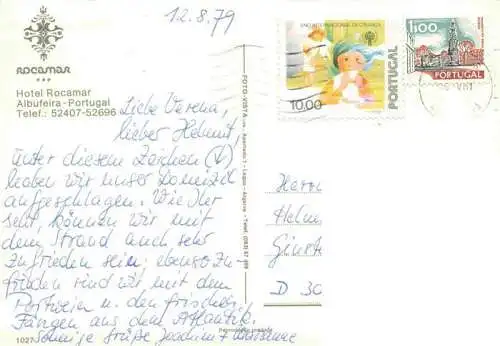 12.8.79
ROCAMAR
Hotel Rocamar
Albufeira - Portugal
Telef.: 52407-52696
ANO INTERNACIONAL DA CRIANÇA
10.00
PORTUGAL
1$00
PORTUGAL
Liebe Verena,
lieber Helmut,
unter diesem Zeichen (↓)
haben wir unser Domizil
aufgeschlagen. Wie Ihr
seht, können wir mit
dem Strand auch sehr
zufrieden sein; ebenso zu-
frieden sind wir mit dem
Portwein u. den frischen
Fängen aus dem Atlantik.
Sonnige Grüße Joachim +
FOTO-VISTA
Herrn
Helm
Günth
D 30
1027